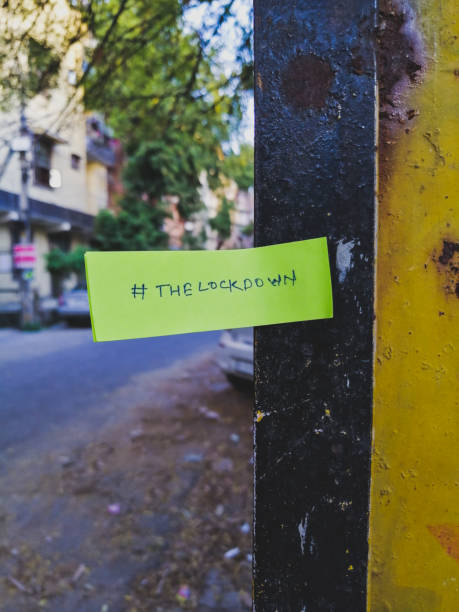 # THELOCKDOWN